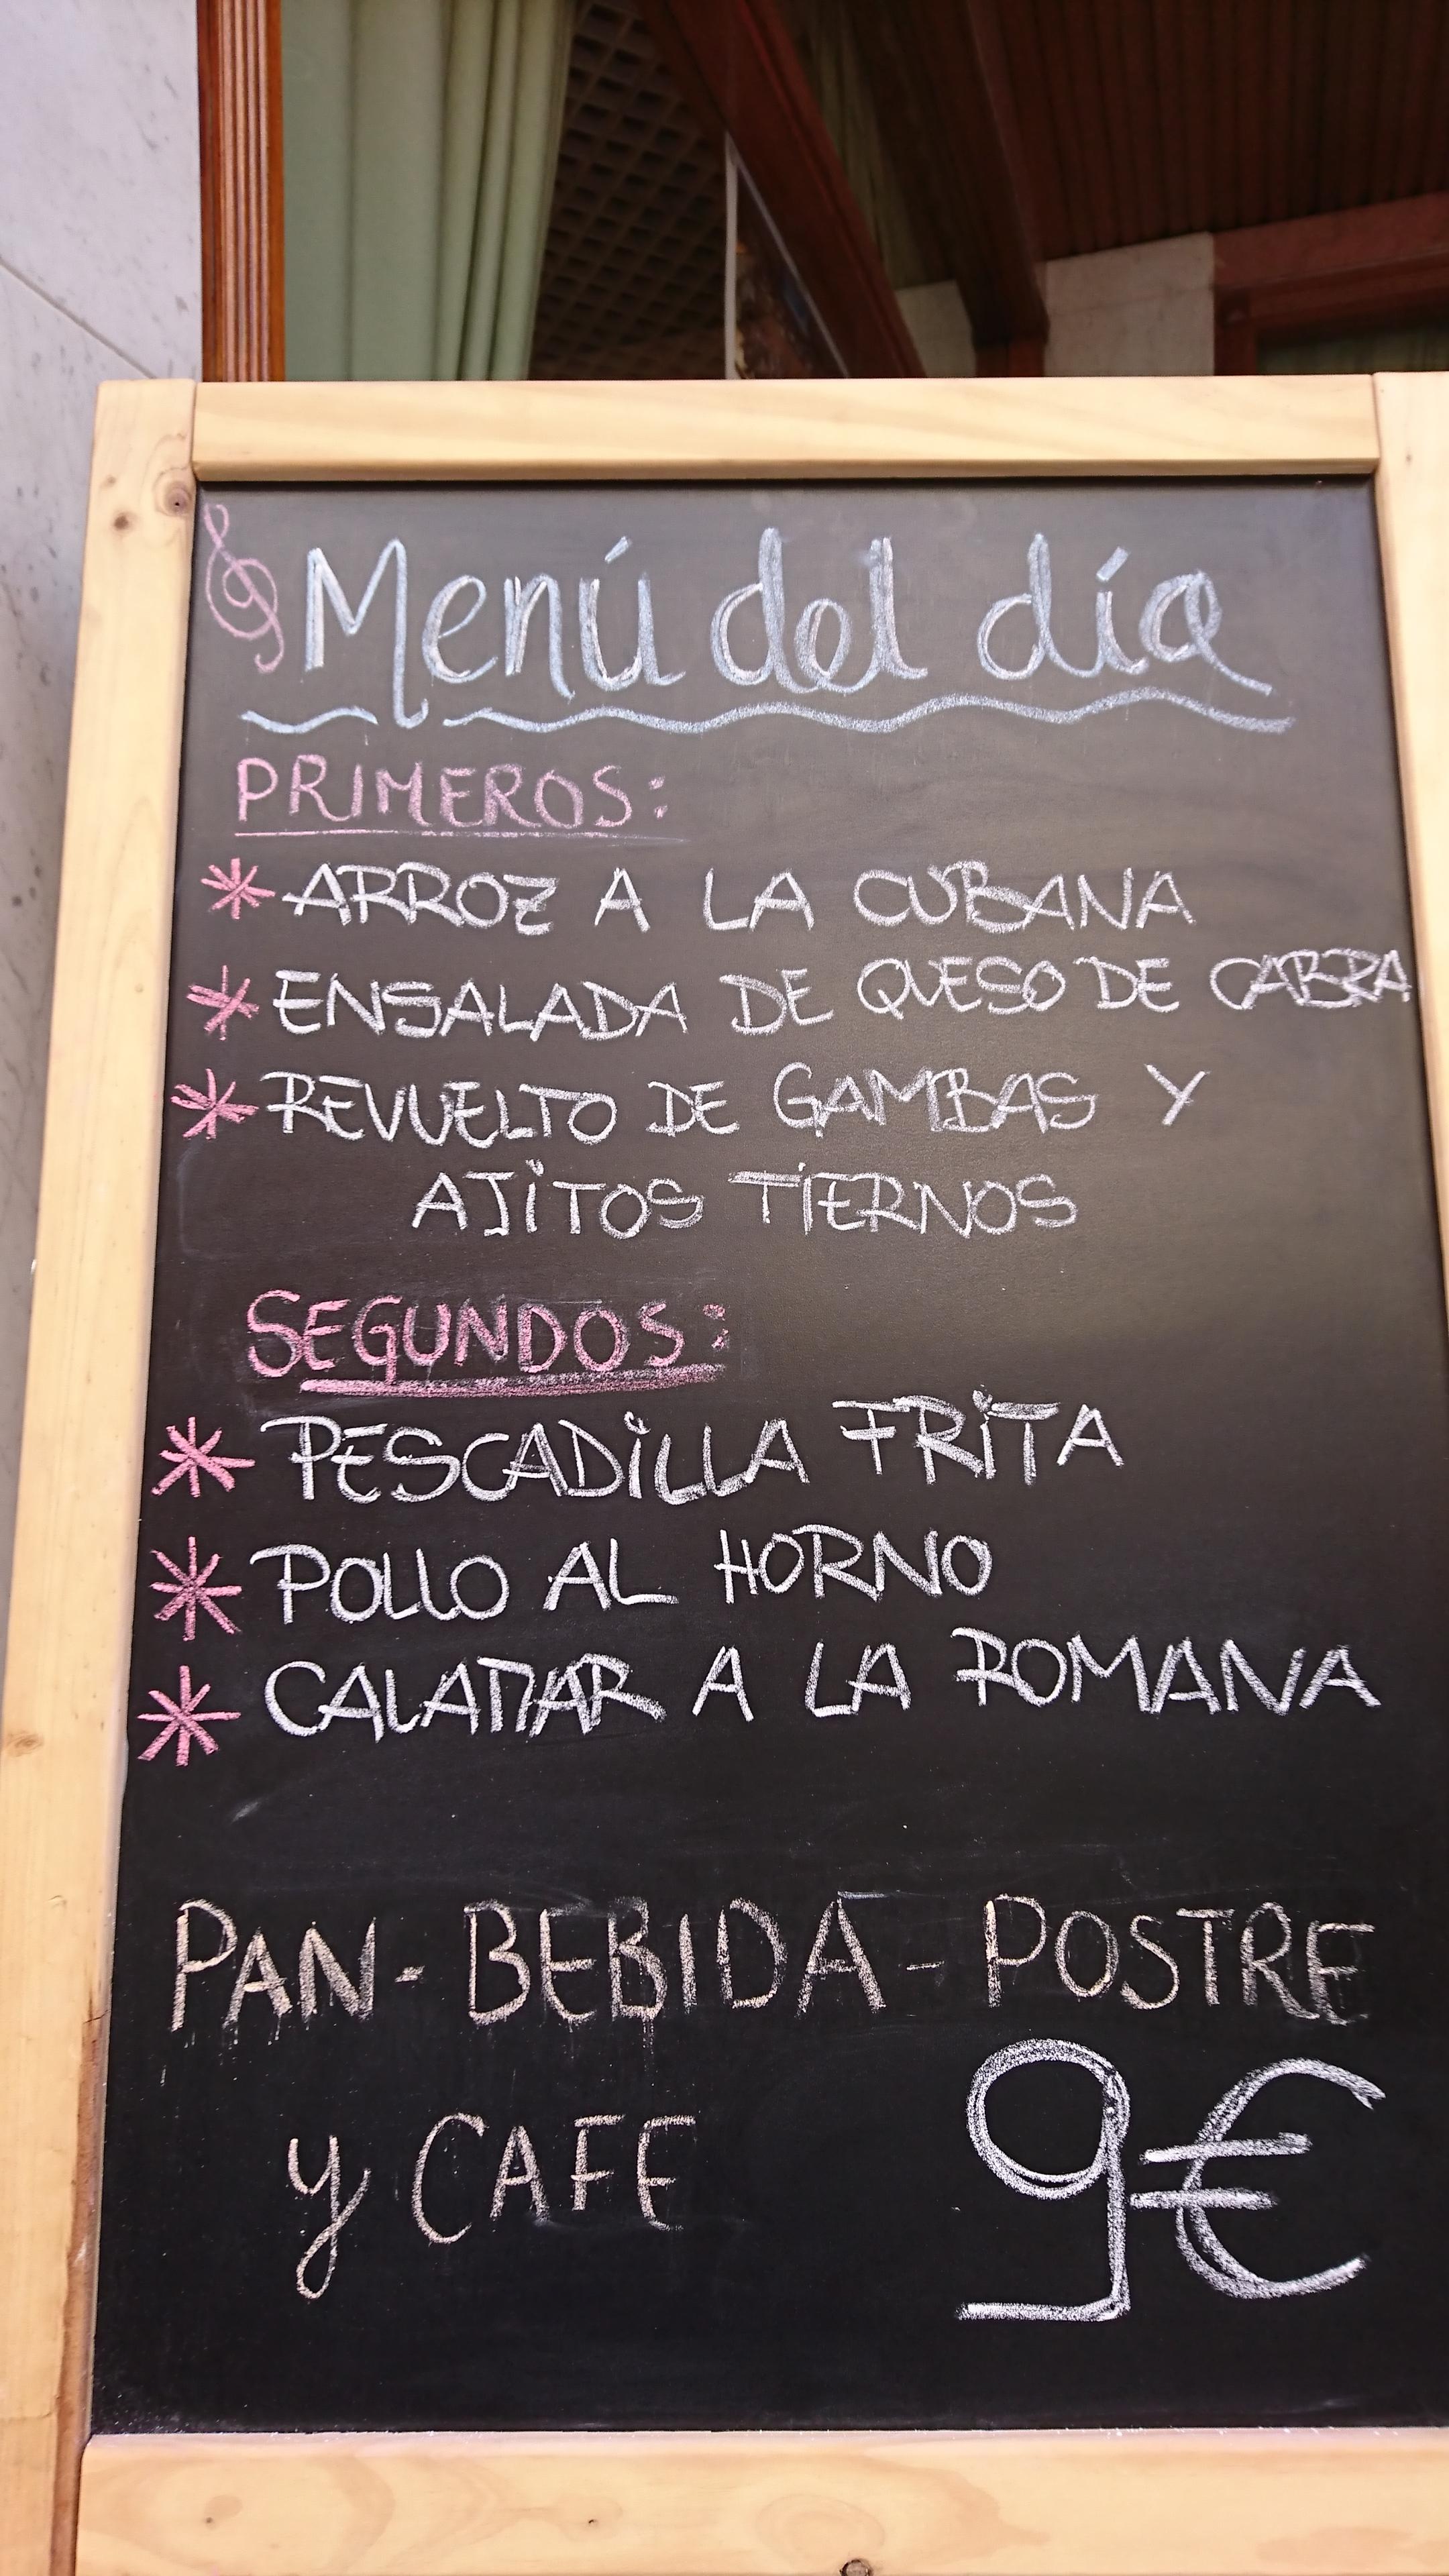 Menú del día
PRIMEROS:
* ARROZ A LA CUBANA
* ENSALADA DE QUESO DE CABRA
* REVUELTO DE GAMBAS Y
AJITOS TIERNOS
SEGUNDOS:
* PESCADILLA FRITA
* POLLO AL HORNO
* CALAMAR A LA ROMANA
PAN - BEBIDA - POSTRE
y CAFE 9€